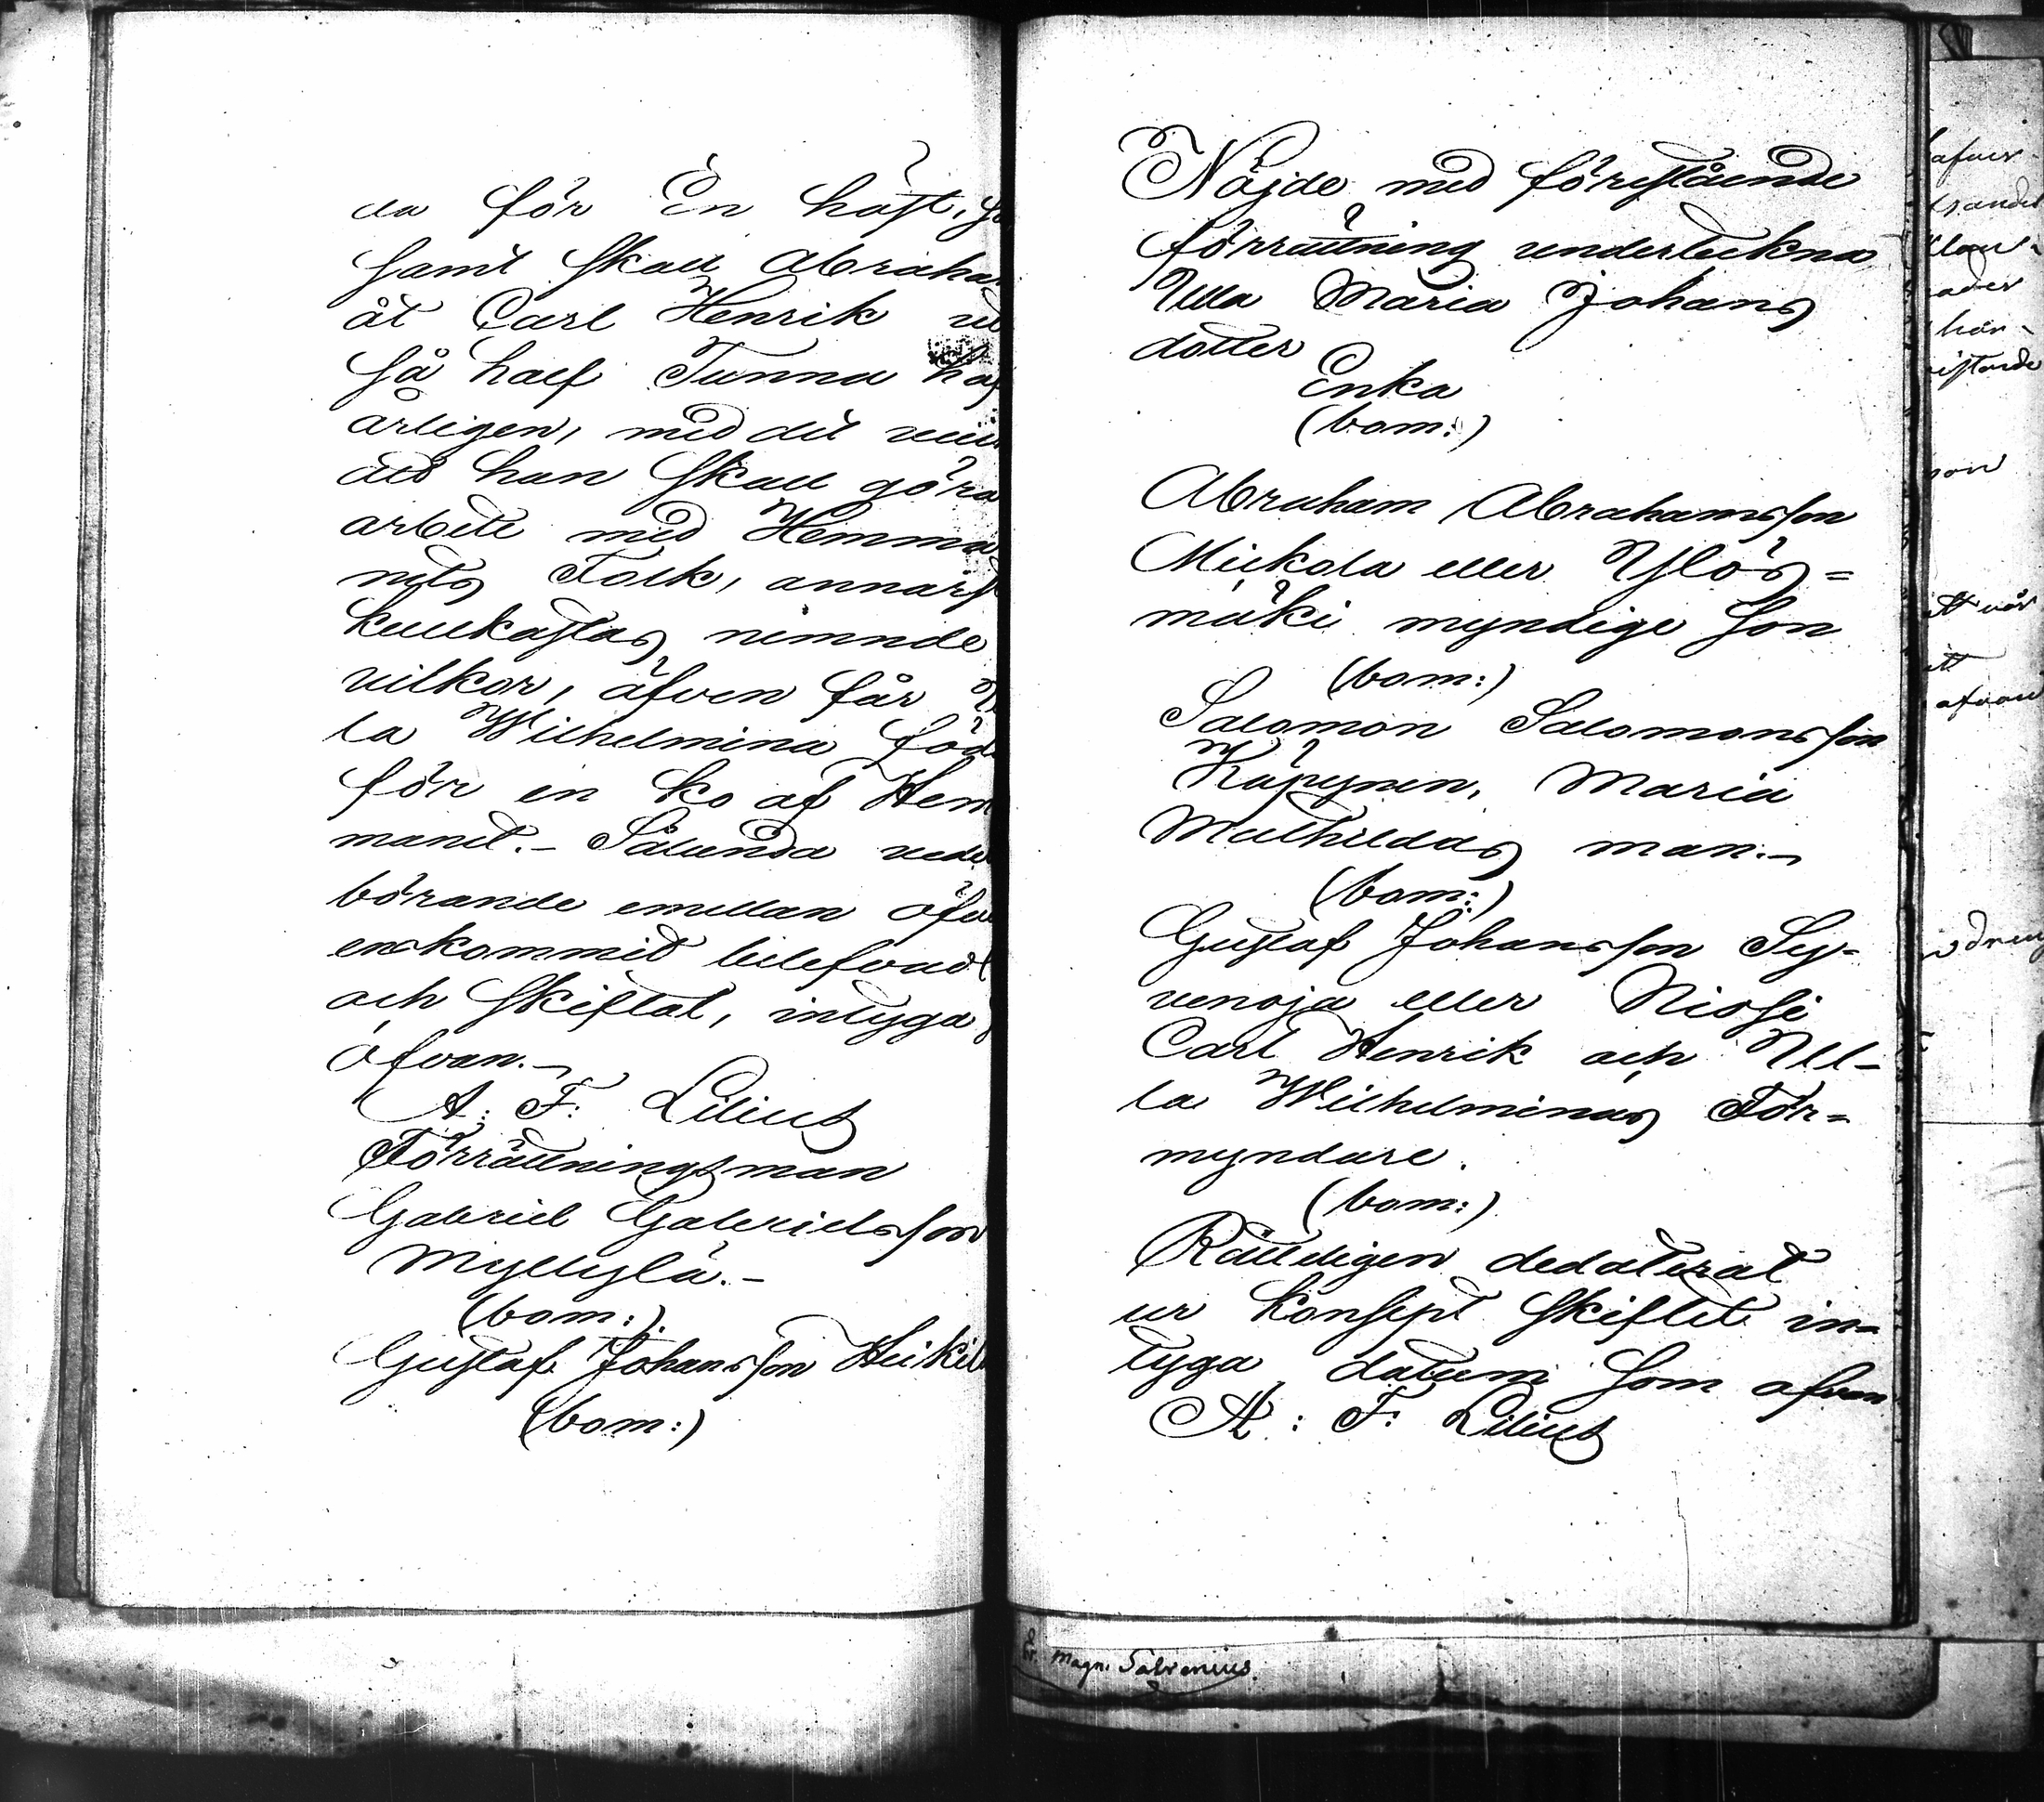 da för En häst,
samt skall Abraham
åt Carl Henrik
så half Tunna
årligen, med det
att han skall göra
arbete med Hemma
nets Folk, annars
kullkastas nemnde
vilkor, äfven får
la Wilhelmina föda
för en ko af Hem
manet. Sålunda
börande emellan öfv
erskommit bilefvadt
och skiftat, intyga
ofvan.
A: F: Lilius
Förrättningsman
Gabriel Gabrielsson
Myllylä.
(bom:)
Gustaf Johansson Heikil
(bom:)
Nöjde med förestående
förrättning underteckna
Ulla Maria Johans
dotter
Enka
(bom:)
Abraham Abrahamsson
Mickola eller Ylös=
mäki myndige son
(bom:)
Salomon Salomonsson
Käpynen, Maria
Mathildas man.
(bom:)
Gustaf Johansson Sy=
venoja eller Niosi
Carl Henrik och Ul=
la Wilhelminas För=
myndare.
(bom:)
Rätteligen dedaterat
ur Konsept skiftet in=
tyga datum som ofvan
A: F: Lilius
Magn. Salvenius